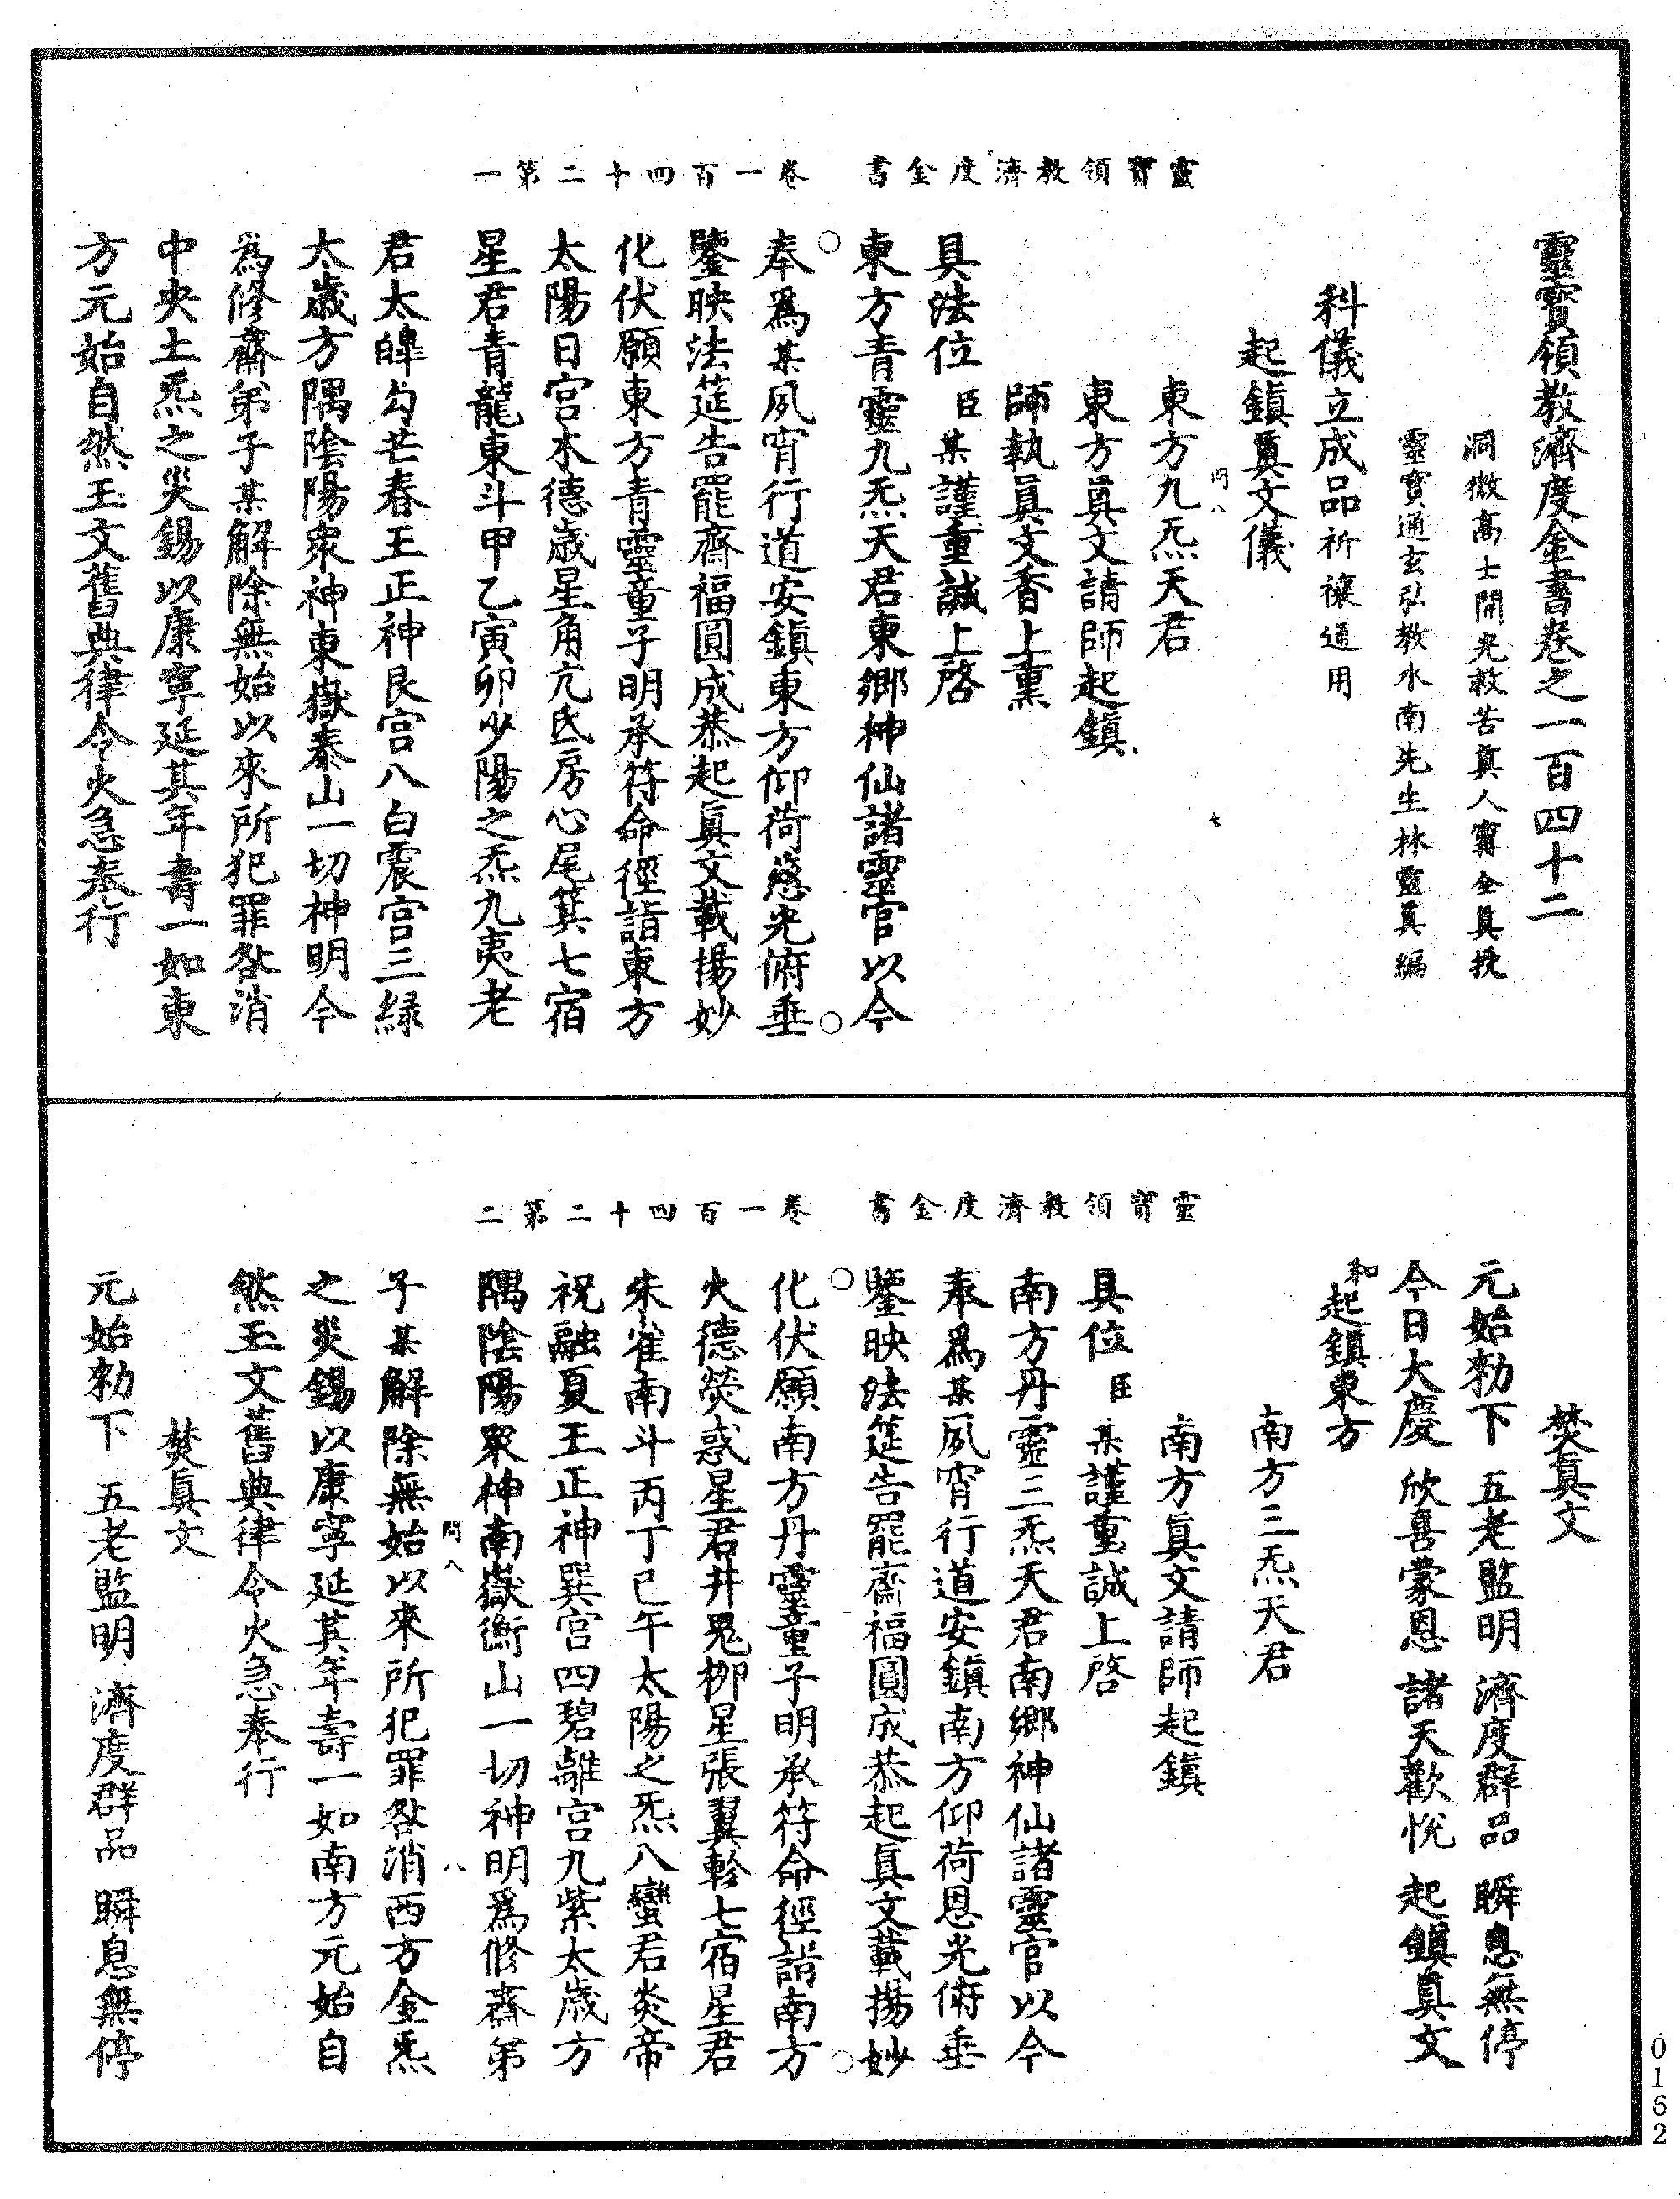 靈寶領教濟度金書卷之一百四十二
洞微高士開光救苦眞人甯全眞授
靈寶通玄弘教水南先生林靈眞編
科儀立成品祈禳通用
起鎭眞文儀
問八
七
東方九炁天君
東方眞文請師起鎭
師執眞文香上熏
具法位臣某謹重誠上啓
東方青靈九炁天君東鄉神仙諸靈官以今
靈寶領教濟度金書
卷一百四十二第一
奉爲某夙宵行道安鎭東方仰荷慈光俯垂
鑒映法筵告罷齋福圓成恭起眞文載揚妙
化伏願東方青靈童子明承符命徑詣東方
太陽日宫木德歲星角亢氐房心尾箕七宿
星君青龍東斗甲乙寅卯少陽之炁九夷老
君太皥勾芒春王正神艮宫八白震宫三緑
太歲方隅陰陽衆神東嶽泰山一切神明今
爲修齋弟子某解除無始以來所犯罪咎消
中央土炁之災錫以康寧延其年壽一如東
方元始自然玉文舊典律令火急奉行
焚眞文
元始勑下 五老監明 濟度群品 瞬息無停
今日大慶 欣喜蒙恩 諸天歡悅 起鎭眞文
和起鎭東方
南方三炁天君
南方眞文請師起鎭
具位臣某謹重誠上啓
南方丹靈三炁天君南鄉神仙諸靈官以今
奉爲某夙宵行道安鎭南方仰荷恩光俯垂
鑒映法筵告罷齋福圓成恭起眞文載揚妙
靈寶領教濟度金書
卷一百四十二第二
化伏願南方丹靈童子明承符命徑詣南方
火德熒惑星君井鬼栁星張翼軫七宿星君
朱雀南斗丙丁巳午太陽之炁八蠻君炎帝
祝融夏王正神巽宫四碧離宫九紫太歲方
隅陰陽衆神南嶽衡山一切神明爲修齋弟
問八
八
子某解除無始以來所犯罪咎消西方金炁
之災錫以康寧延其年壽一如南方元始自
然玉文舊典律令火急奉行
焚眞文
元始勑下 五老監明 濟度群品 瞬息無停
0162